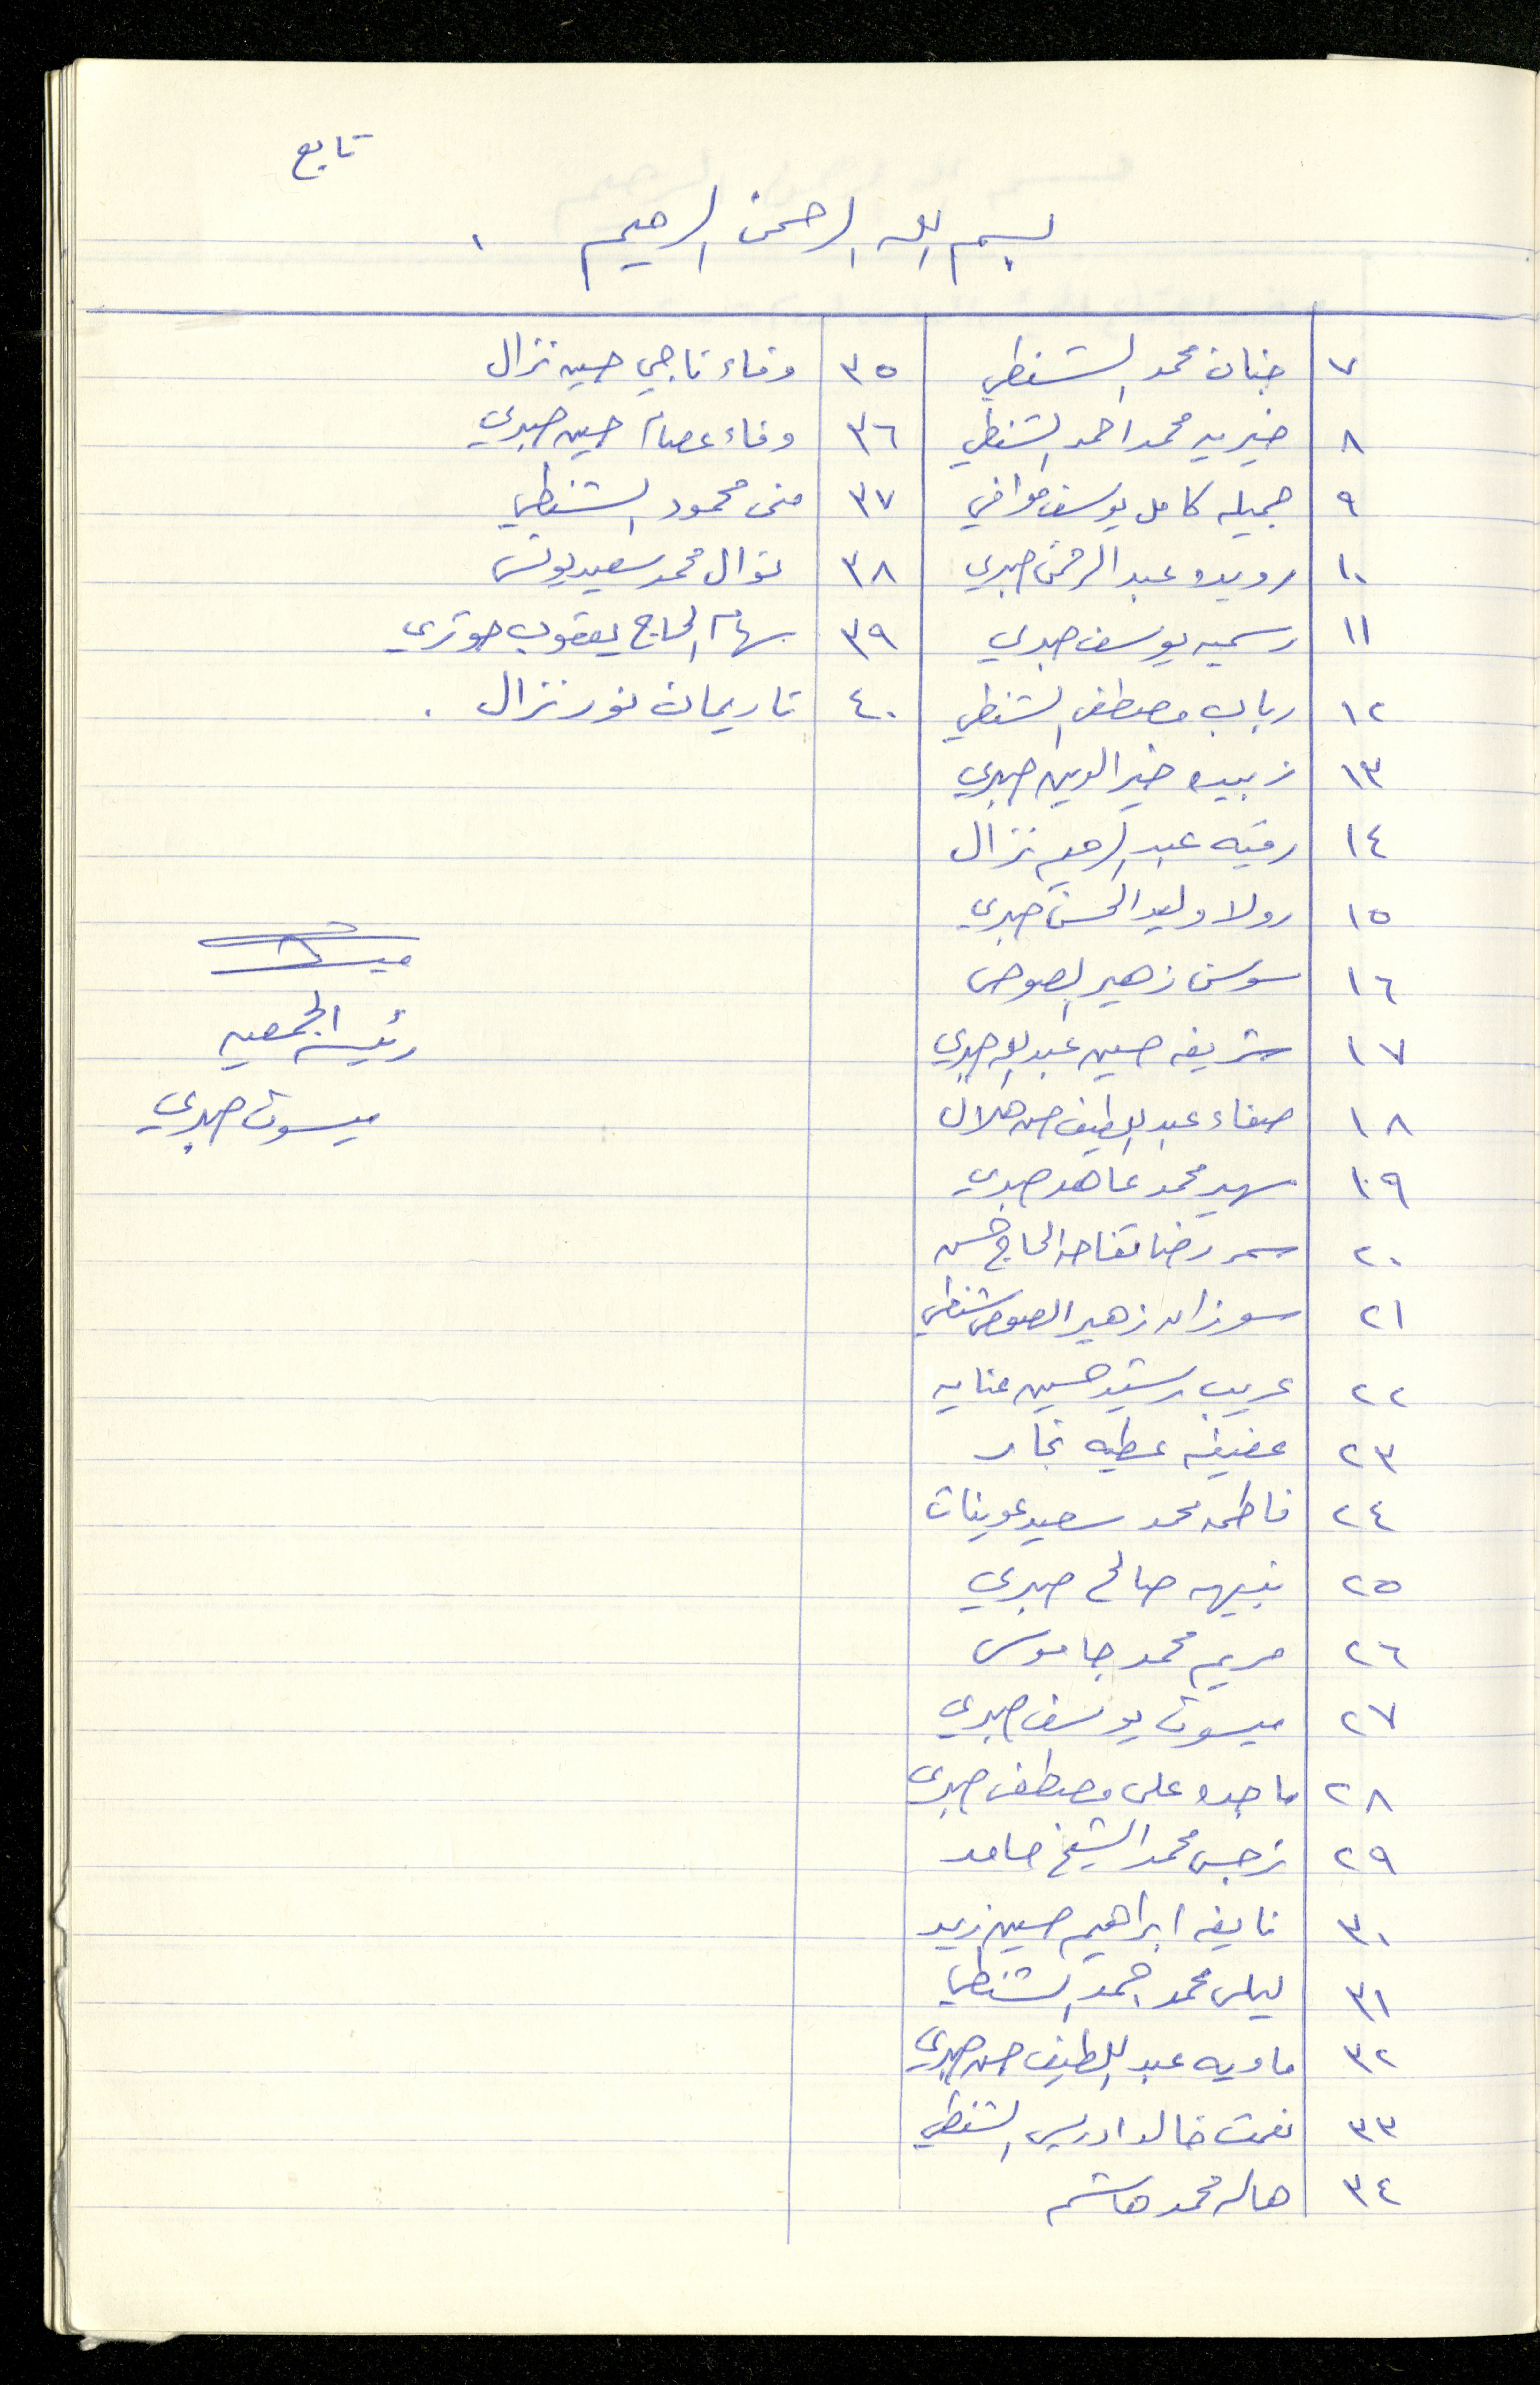 تابع
بسم الله الرحمن الرحيم
٧ جنان محمد الشنطي
٨ خيريه محمد احمد الشنطي
٩ جميله كامل يوسف موافي
١٠ رويده عبد الرحمن صبري
١١ رسميه يوسف صبري
١٢ رباب مصطفى الشنطي
١٣ زبيده خير الدين صبري
١٤ رقيه عبد الرحيم نزال
١٥ رولا وليد الحسن صبري
١٦ سوسن زهير الصوص
١٧ شريفه حسين عبد الله صبري
١٨ صفاء عبد اللطيف حسن هلال
١٩ سهير محمد عاهد صبري
٢٠ سمر رضا تفاحه الحاج حسن
٢١ سوزان زهير الصوص شنطي
٢٢ عريب رشيد حسين عنايه
٢٣ عفيفه عطيه نجار
٢٤ فاطمه محمد سعيد عوينات
٢٥ نبيهه صالح صبري
٢٦ مريم محمد جاموس
٢٧ ميسون يوسف صبري
٢٨ ماجده علي مصطفى صبري
٢٩ نرجس محمد الشيخ حامد
٣٠ نايفه ابراهيم حسين زيد
٣١ ليلى محمد احمد الشنطي
٣٢ ماويه عبد اللطيف حسن صبري
٣٣ نعمت خالد ادريس الشنطي
٣٤ هاله محمد هاشم
٣٥ وفاء ناجي حسين نزال
٣٦ وفاء عصام حسين صبري
٣٧ منى محمود الشنطي
٣٨ نوال محمد سعيد يونس
٣٩ سهام الحاج يعقوب جوتري
٤٠ ناريمان نور نزال .
رئيسة الجمعيه
ميسون صبري